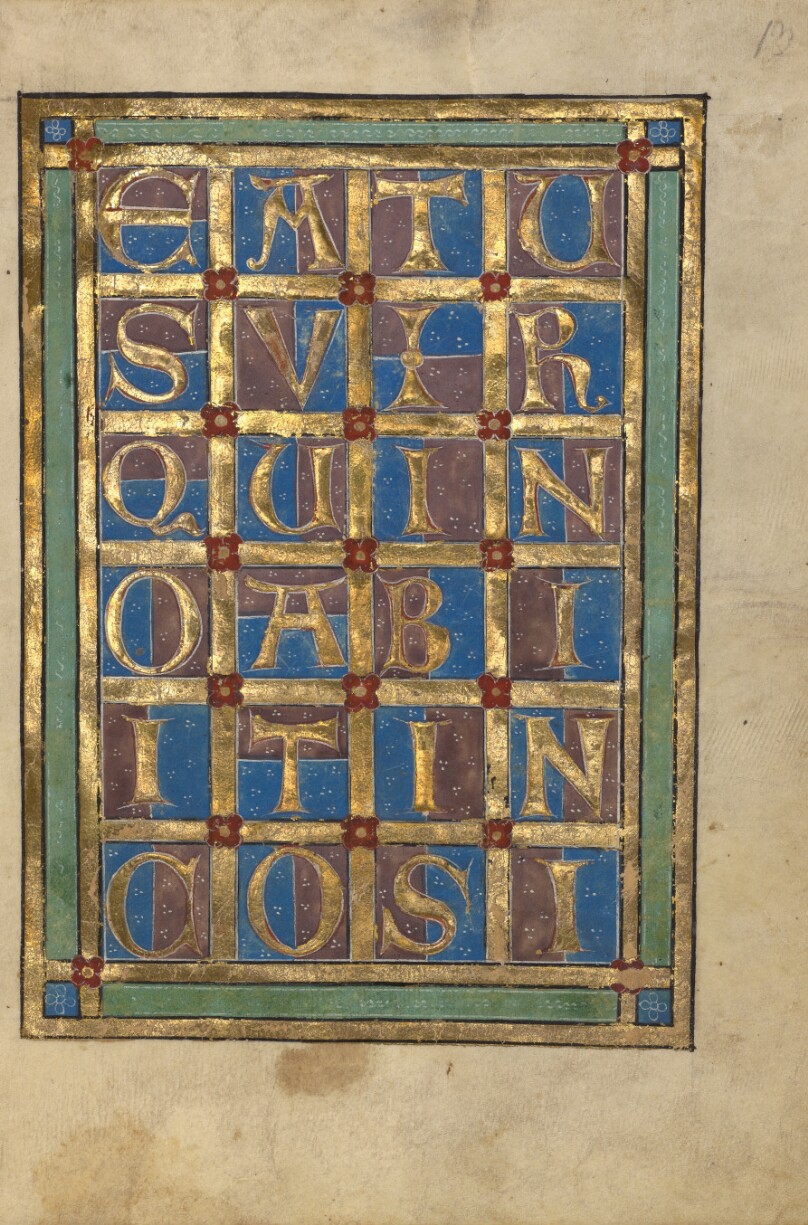 13
EATU
SVIR
QUIN
OABI
ITIN
COSI